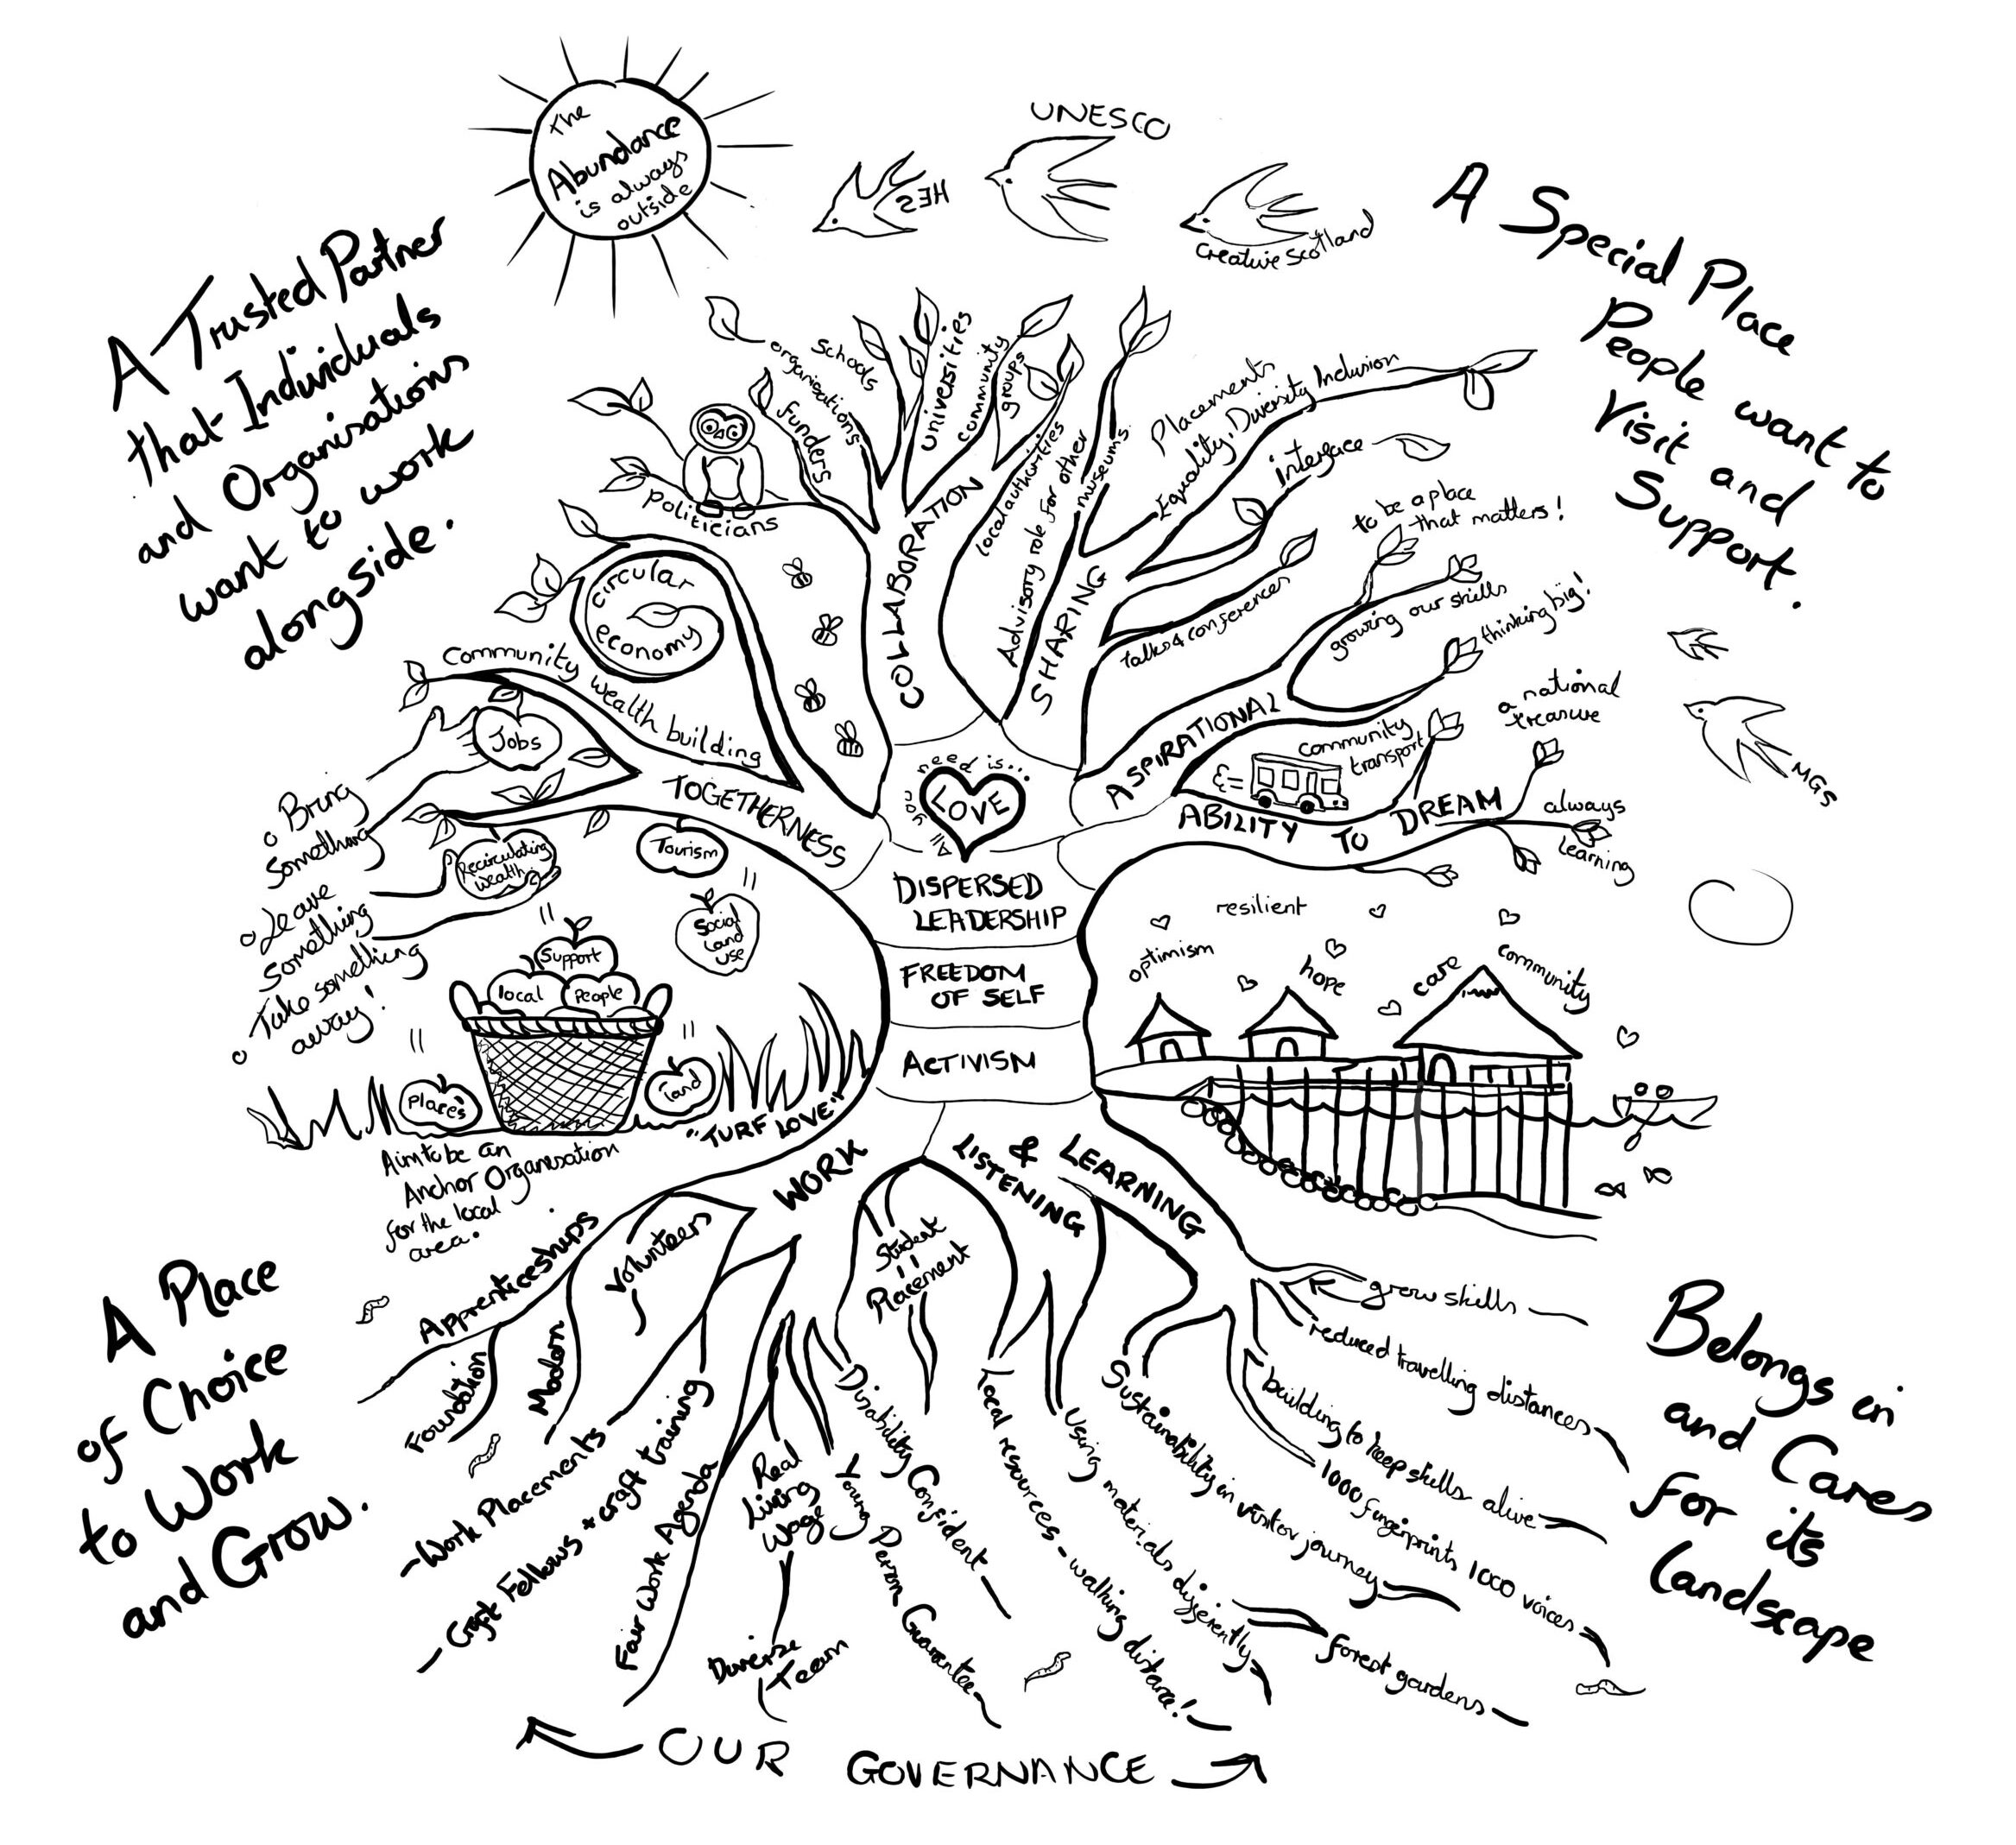 The
Abundance
is always
outside
HES
UNESCO
Creative Scotland
A Trusted Partner
that Individuals
and Organisations
want to work
alongside.
A Special Place
People want to
Visit and
Support.
organisations
Schools
Universities
community
groups
funders
politicians
COLLABORATION
local authorities
Advisory role for other
museums.
SHARING
Placements
Equality, Diversity, Inclusion
interface
talks & conferences
to be a place
that matters!
growing our skills
thinking big!
ASPIRATIONAL
community
transport
a national
treasure
ABILITY TO DREAM
always
learning
MGS
circular
economy
Community wealth building
TOGETHERNESS
Jobs
Recirculating
wealth
Tourism
Social
Land
use
Support
local
People
Places
Land
"TURF LOVE"
o Bring
something
o Leave
something
o Take something
away!
Aim to be an
Anchor Organisation
for the local
area.
need is...
LOVE
all
you
DISPERSED
LEADERSHIP
FREEDOM
OF SELF
ACTIVISM
resilient
optimism
hope
care
community
WORK
LISTENING
& LEARNING
Apprenticeships
Foundation
Modern
Volunteers
Work Placements
Craft Fellows + craft training
Fair Work Agenda
Real
Living
Wage
Diverse
Team
Young Person Guarantee
Disability Confident
Student
Placement
Local resources - walking distance!
Using materials differently
forest gardens
Sustainability in visitor journey
1000 fingerprints 1000 voices
building to keep skills alive
reduced travelling distances
grow skills
A Place
of Choice
to Work
and Grow.
Belongs in
and Cares
for its
Landscape
OUR GOVERNANCE